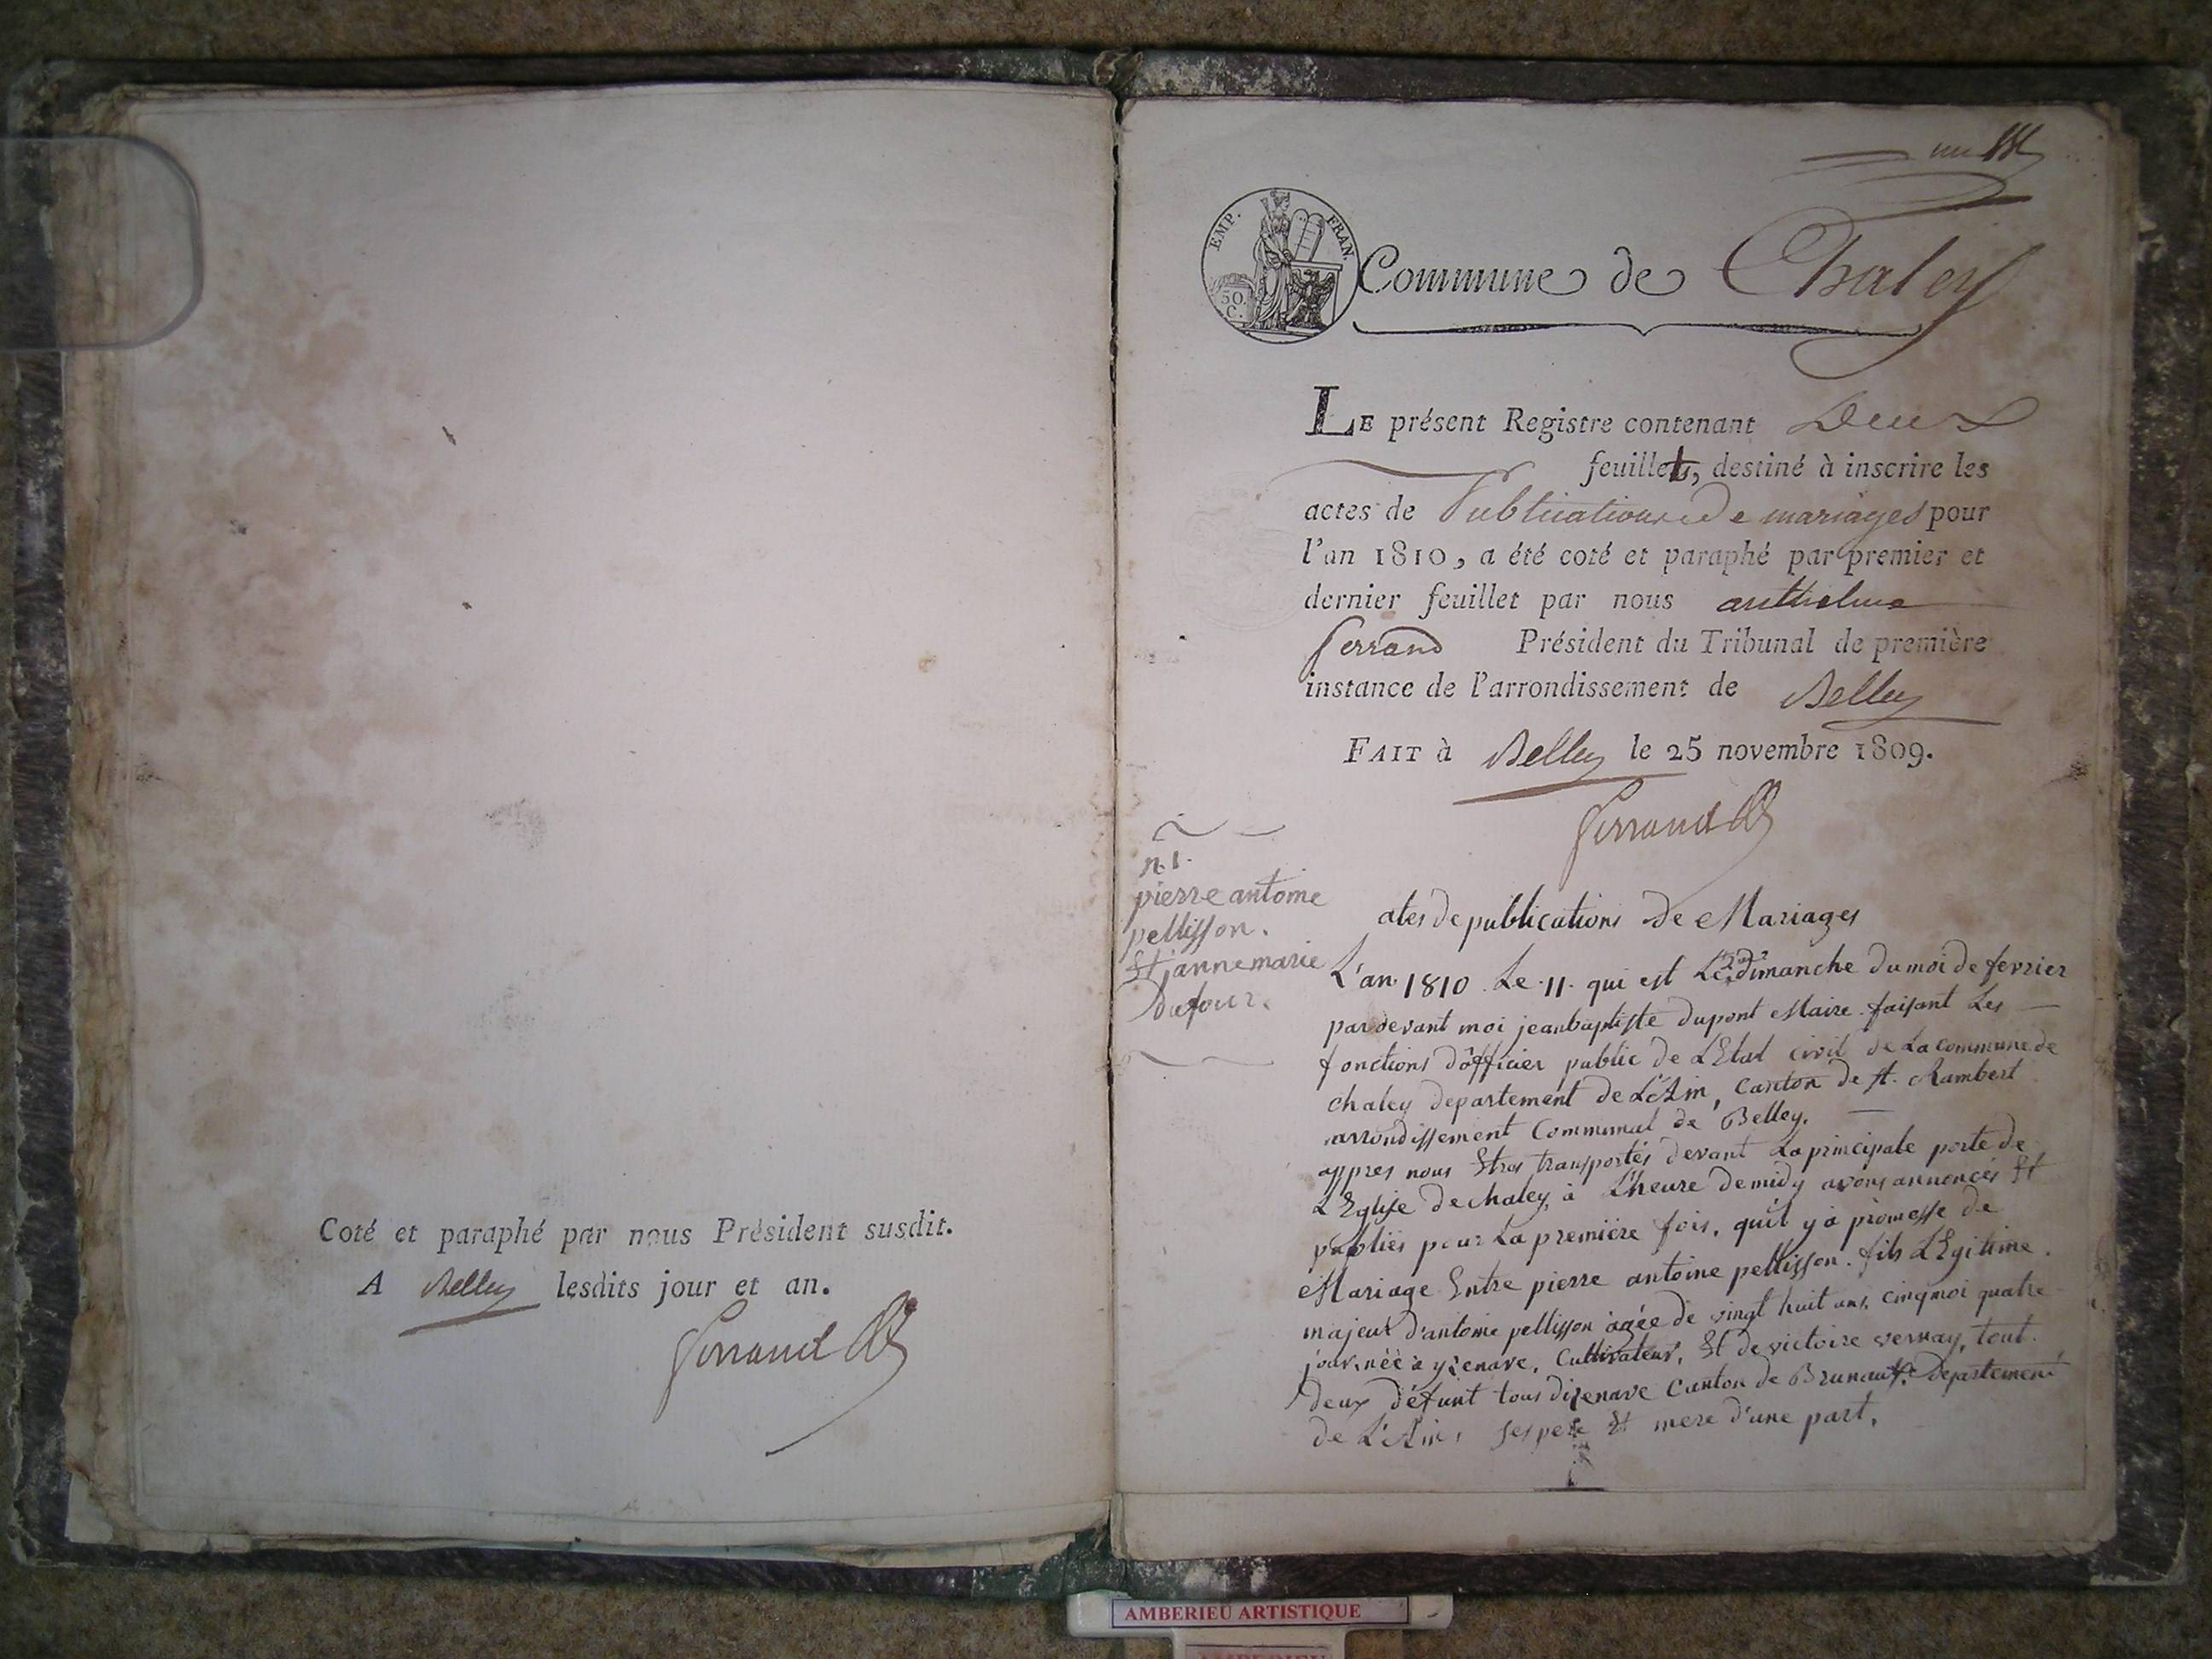 Coté et paraphé par nous Président susdit.
A Belley lesdits jour et an.
Ferrand
un
EMP. FRAN.
50.
C.
Commune de Chaley
LE présent Registre contenant Deux
feuillets, destiné à inscrire les
actes de Publications de mariages pour
l'an 1810, a été coté et paraphé par premier et
dernier feuillet par nous anthelme
ferrand Président du Tribunal de première
instance de l'arrondissement de Belley
FAIT à Belley le 25 novembre 1809.
Ferrand
n. 1.
pierre antoine
pellisson.
Et janne marie
Dufour.
ates de publications de Mariages
L'an 1810 Le 11 qui est Le dimanche du moi de fevrier
pardevant moi jeanbaptiste dupont Maire faisant Les
fonctions d'officier public de L'Etat civil de La commune de
chaley departement de L'Ain, Canton de st. Rambert
arrondissement Communal de Belley.
appres nous Etres transportés devant La principale porte de
L'Eglise de chaley, à L'heure de midy avons annoncés Et
publiés pour La premiere fois, qu'il y a promesse de
Mariage Entre pierre antoine pellisson. fils LEgitime
majeur d'antoine pellisson agée de vingt huit ans, cinq moi quatre
jour, née a yzenave, Cultivateur, Et de victoire vernay, tout
deux défunt tous dizenave Canton de Departement
de L'Ain, ses pere Et mere d'une part,
AMBERIEU ARTISTIQUE
AMBERIEU